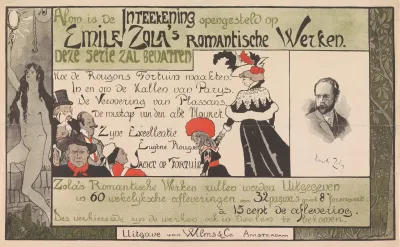 Alom is De INTEEKENING opengesteld op
EMILE ZOLA's ROMANTISCHE WERKEN.
DEZE SERIE ZAL BEVATTEN
Hoe de Rougons Fortuin maakten.
In en om de Hallen van Parys.
De Verovering van Plassans.
De misstap van den abbé Mouret.
Zyne Excellentie
Eugène Rougon
JACHT OP FORTUIN
Zola's Romantische Werken zullen worden Uitgegeven
in 60 wekelijksche afleveringen van 32 pagina's groot 8°
à 15 cent de aflevering.
Bes
zijn de werken ook in
te bekomen.
Uitgave van Wilms & Co. AMSTERDAM